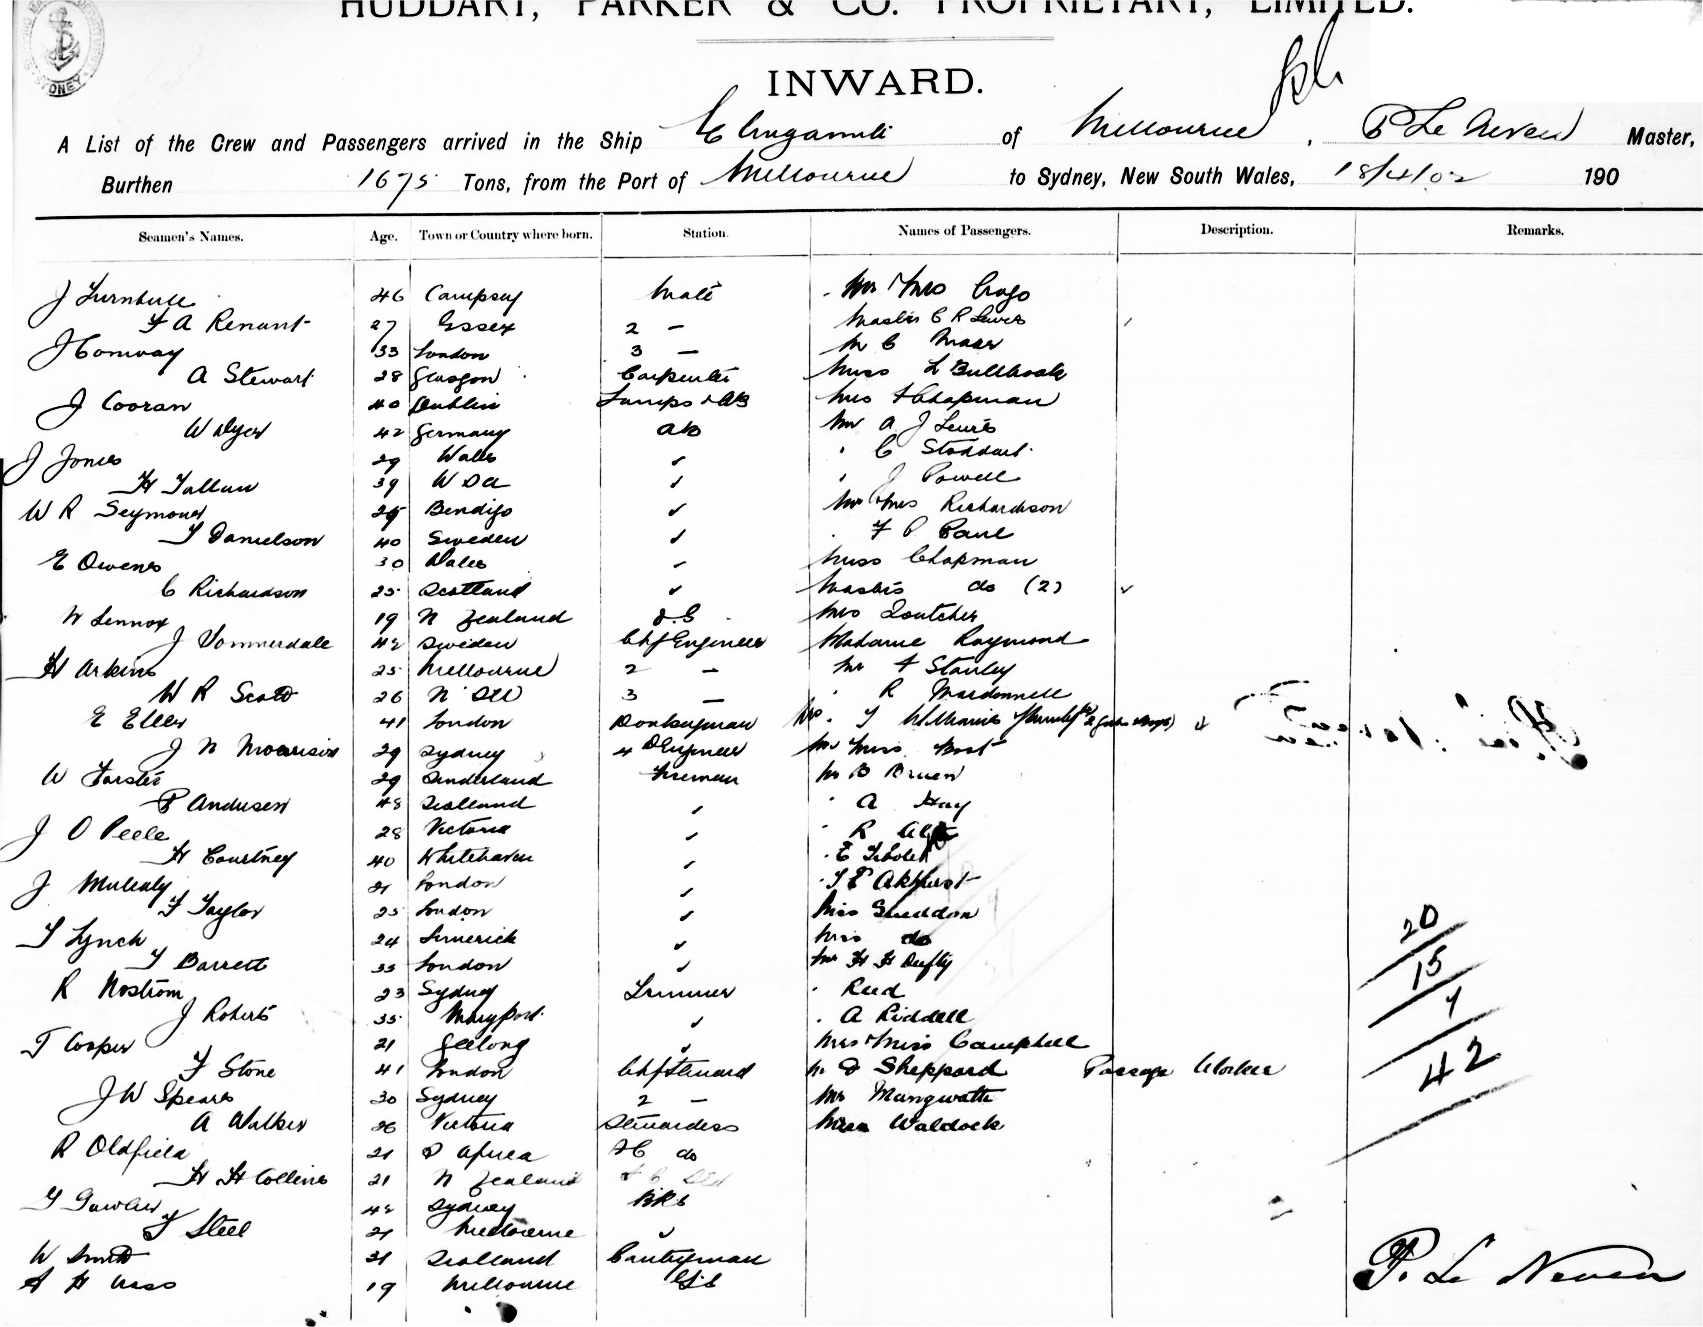 HUDDART, PARKER & CO. PROPRIETARY, LIMITED.
SYDNEY
INWARD.
A List of the Crew and Passengers arrived in the Ship Elingamite of Melbourne, P Le Neven Master,
Burthen 1675 Tons, from the Port of Melbourne to Sydney, New South Wales, 18/4/02 190
Seamen's Names. Age. Town or Country where born. Station. Names of Passengers. Description. Remarks.
J Turnbull 46 Mate Mr & Mrs Crago
F A Renant 27 Essex 2 — Master C R Lewis
J Conway 33 London 3 — Mr C
A Stewart 28 Glasgow Carpenter Miss L Bullbrook
J Cooran 40 Dublin Lamps & AB Mrs Chapman
W Dyer 42 Germany AB Mr A J Lewis
J Jones 29 Wales ✓ " C Stoddart
H Tallan 39 ✓ " J Powell
W R Seymour 25 Bendigo ✓ Mr & Mrs Richardson
T Danielson 40 Sweden ✓ F P Paul
E Owens 30 Wales ✓ Miss Chapman
C Richardson 25 Scotland ✓ Masters do (2) ✓
W Lennox 19 N Zealand Mrs Loutcher
J Sommerdale 42 Sweden Chf Engineer Madame Raymond
H Arkins 25 Melbourne 2 — Mr F Stanley
W R Scott 26 N S W 3 — " R Macdonnell
E Eller 41 London Donkeyman Mrs. T Williams & family
J N Morrison 29 Sydney 4 Engineer Mr & Miss
W Forster 29 Sunderland Fireman Mr B Bruen
P Andersen 48 Scotland ✓ " A Hay
J O Peele 28 Victoria ✓ " R
H Courtney 40 Whitehaven ✓ " E
J Mulealy 21 London ✓ " T E Akhurst
F Taylor 25 London ✓ Miss Sneddon
T Lynch 24 Limerick ✓ Miss do
T Barrett 33 London ✓ Mr H H Dufty
R Nostrom 23 Sydney Trimmer " Reed
J Roberts 35 Maryport ✓ " A Riddell
T Cooper 21 Geelong ✓ Mrs & Miss Campbell
F Stone 41 London Chf Steward Mr D Sheppard Passage Worker
J W Spears 30 Sydney 2 — Mr Mungwatt
A Walker 26 Victoria Stewardess Waldock
R Oldfield 21 S Africa do
H H Collins 21 N Zealand
G Gawler 42 Sydney BRS
F Steel 21 Melbourne ✓
W Smith 31 Scotland Pantryman
A H 19 Melbourne
20
15
7
42
P. Le Neven